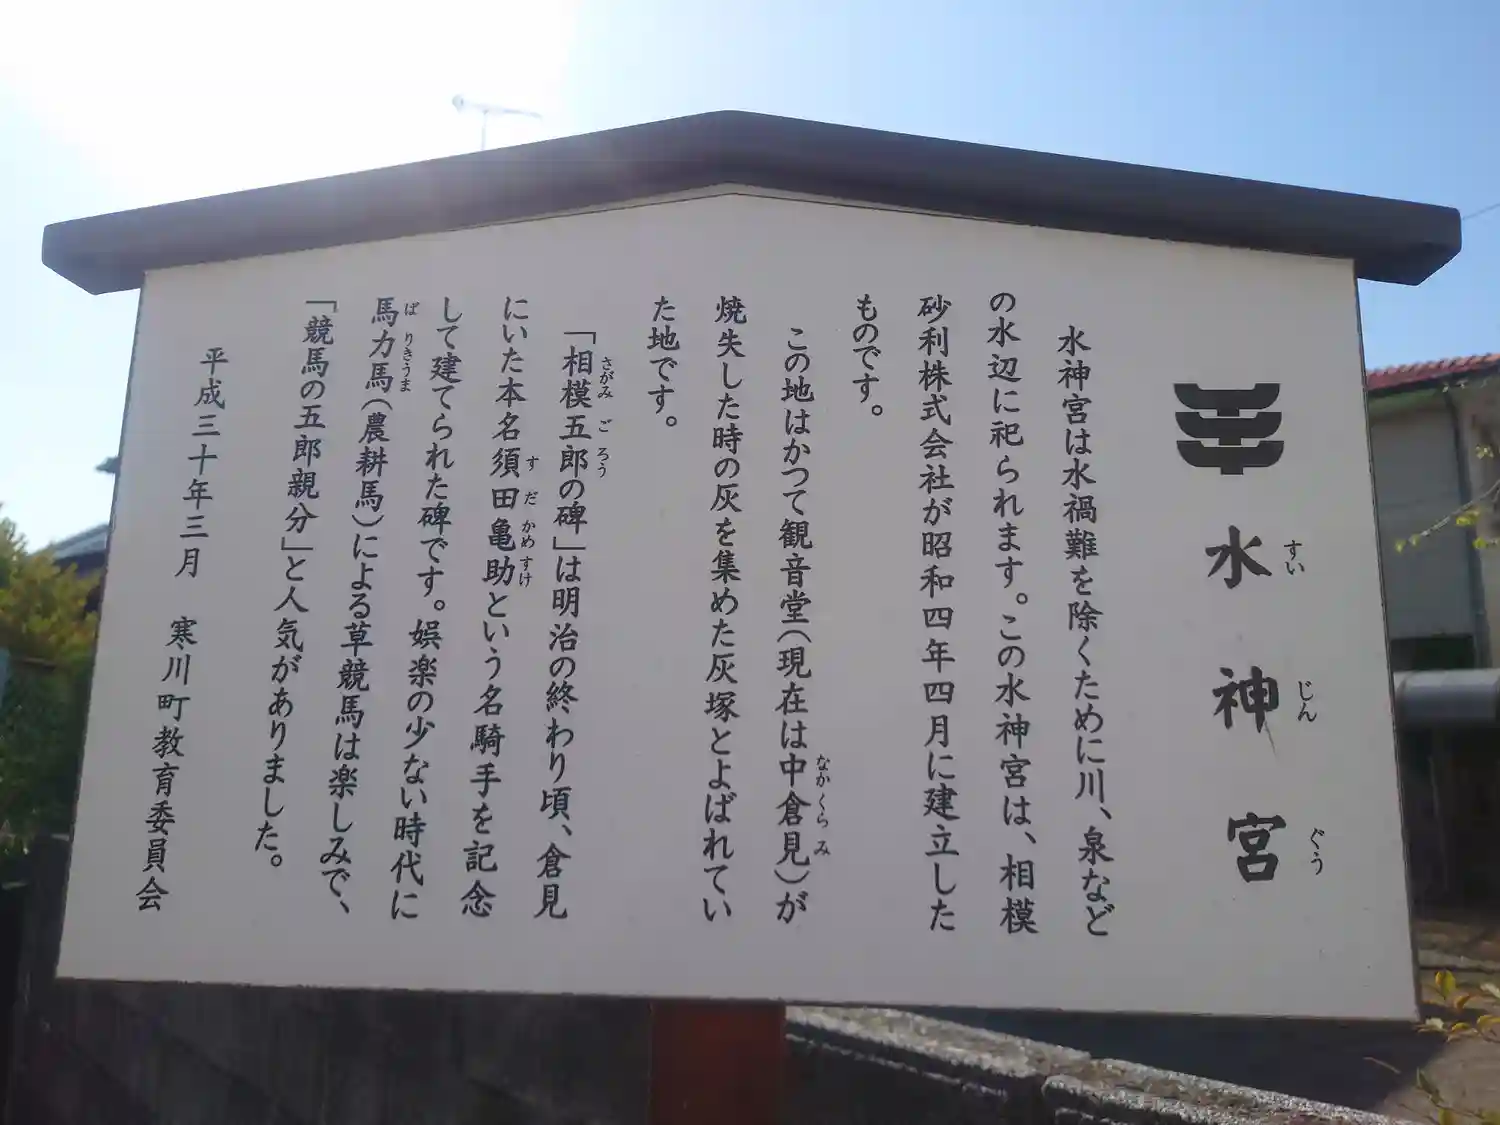 水神宮
すい じん ぐう
水神宮は水禍難を除くために川、泉など
の水辺に祀られます。この水神宮は、相模
砂利株式会社が昭和四年四月に建立した
ものです。
この地はかつて観音堂(現在は中倉見)が
なかくらみ
焼失した時の灰を集めた灰塚とよばれてい
た地です。
「相模五郎の碑」は明治の終わり頃、倉見
さがみ ごろう
にいた本名須田亀助という名騎手を記念
すだ かめすけ
して建てられた碑です。娯楽の少ない時代に
馬力馬(農耕馬)による草競馬は楽しみで、
ばりきうま
「競馬の五郎親分」と人気がありました。
平成三十年三月 寒川町教育委員会